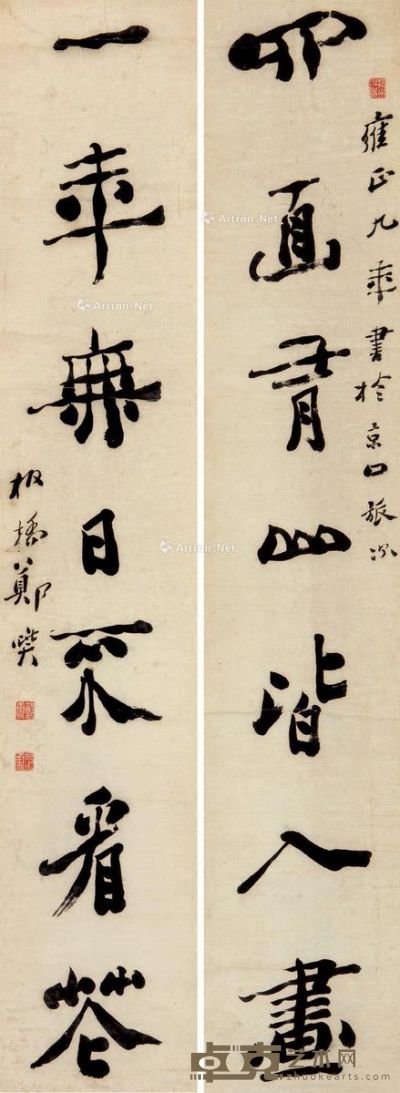 雍正九年書於京口旅次
四面青山皆入畫
一年無日不看花
板橋鄭燮
Artron.Net
Artron.Net
Artron.Net
卓克艺术网
zhuokearts.com